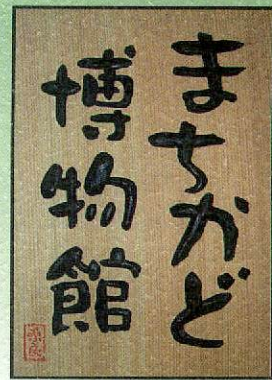 まちかど
博物館